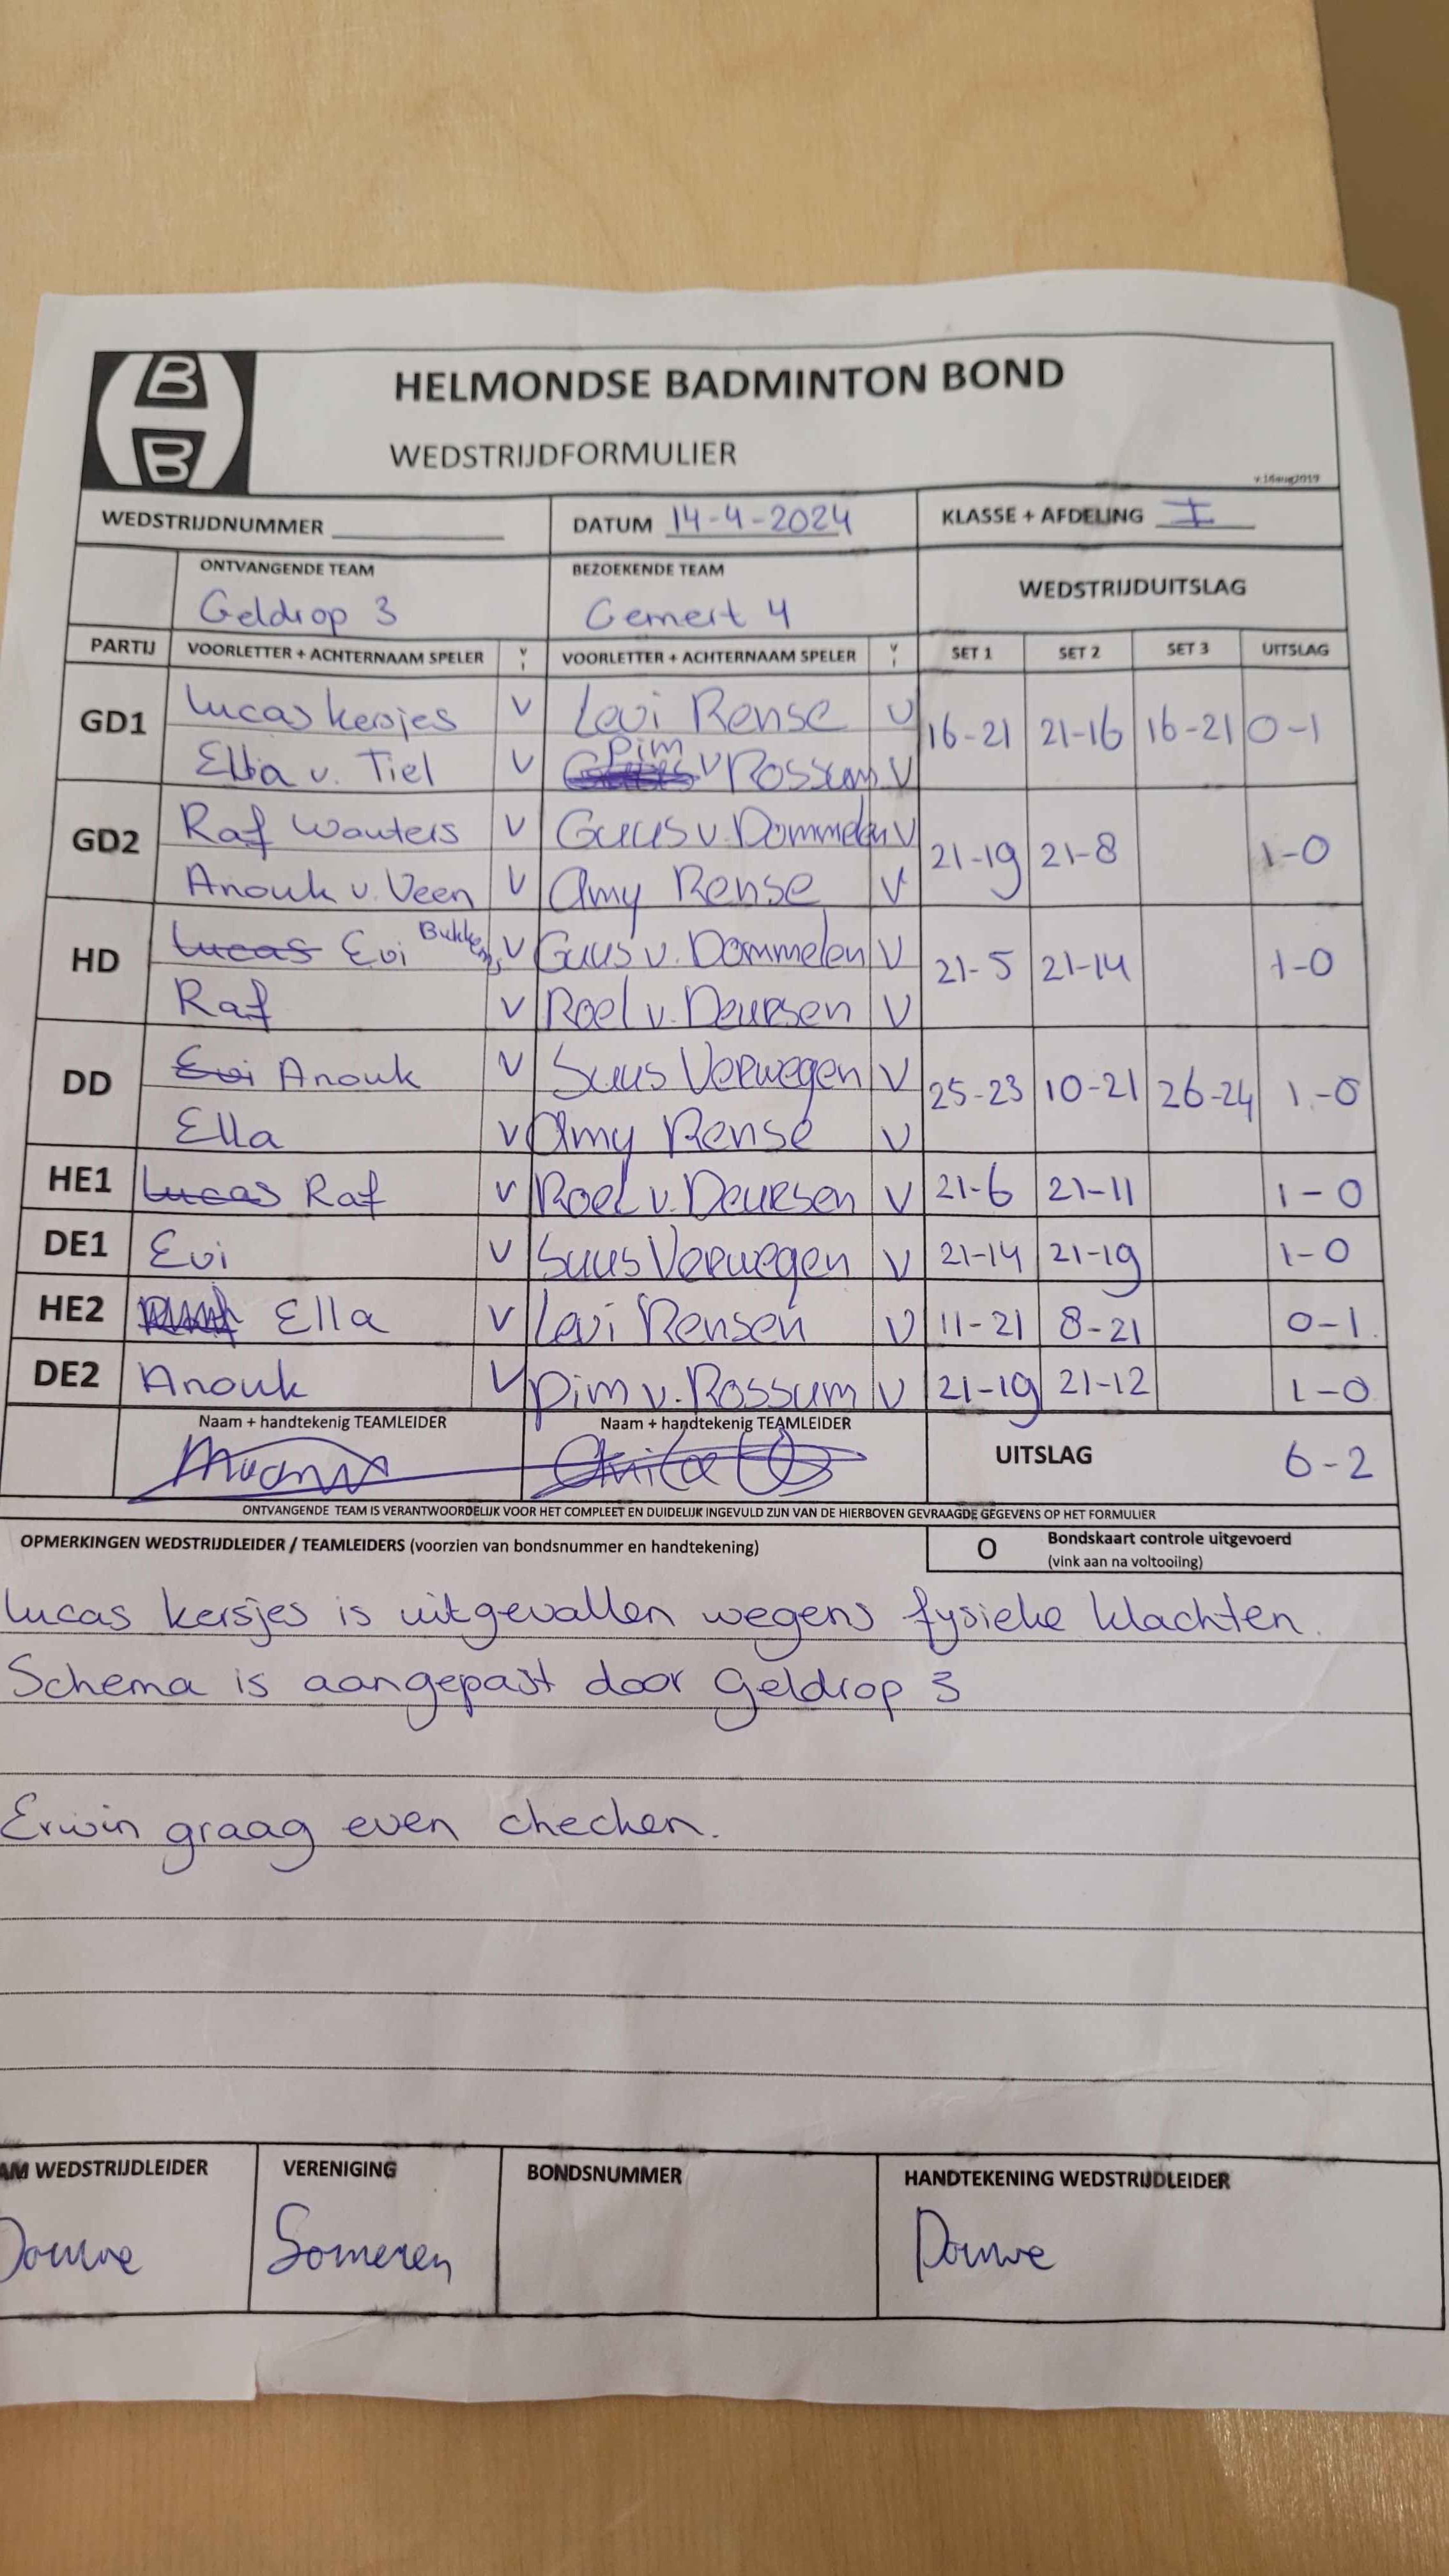 B
B
HELMONDSE BADMINTON BOND
WEDSTRIJDFORMULIER
v.16aug2019
WEDSTRIJDNUMMER DATUM 14-4-2024 KLASSE + AFDELING I
ONTVANGENDE TEAM BEZOEKENDE TEAM WEDSTRIJDUITSLAG
Geldrop 3 Gemert 4
PARTIJ VOORLETTER + ACHTERNAAM SPELER V VOORLETTER + ACHTERNAAM SPELER V SET 1 SET 2 SET 3 UITSLAG
GD1 Lucas Kersjes V Levi Rense V 16-21 21-16 16-21 0-1
Ella v. Tiel V Pim v Rossum V
GD2 Raf Wouters V Guus v. Dommelen V 21-19 21-8 1-0
Anouk v. Veen V Amy Rense V
HD Lucas Evi V Guus v. Dommelen V 21-5 21-14 1-0
Raf V Roel v. Deursen V
DD Evi Anouk V Suus Verwegen V 25-23 10-21 26-24 1-0
Ella V Amy Rense V
HE1 Lucas Raf V Roel v. Deursen V 21-6 21-11 1-0
DE1 Evi V Suus Verwegen V 21-14 21-19 1-0
HE2 Ella V Levi Rensen V 11-21 8-21 0-1
DE2 Anouk V Pim v. Rossum V 21-19 21-12 1-0
Naam + handtekenig TEAMLEIDER Naam + handtekenig TEAMLEIDER
UITSLAG 6-2
ONTVANGENDE TEAM IS VERANTWOORDELIJK VOOR HET COMPLEET EN DUIDELIJK INGEVULD ZIJN VAN DE HIERBOVEN GEVRAAGDE GEGEVENS OP HET FORMULIER
OPMERKINGEN WEDSTRIJDLEIDER / TEAMLEIDERS (voorzien van bondsnummer en handtekening) O Bondskaart controle uitgevoerd
(vink aan na voltooiing)
Lucas Kersjes is uitgevallen wegens fysieke klachten.
Schema is aangepast door Geldrop 3
Erwin graag even checken.
AM WEDSTRIJDLEIDER VERENIGING BONDSNUMMER HANDTEKENING WEDSTRIJDLEIDER
Douwe Someren Douwe